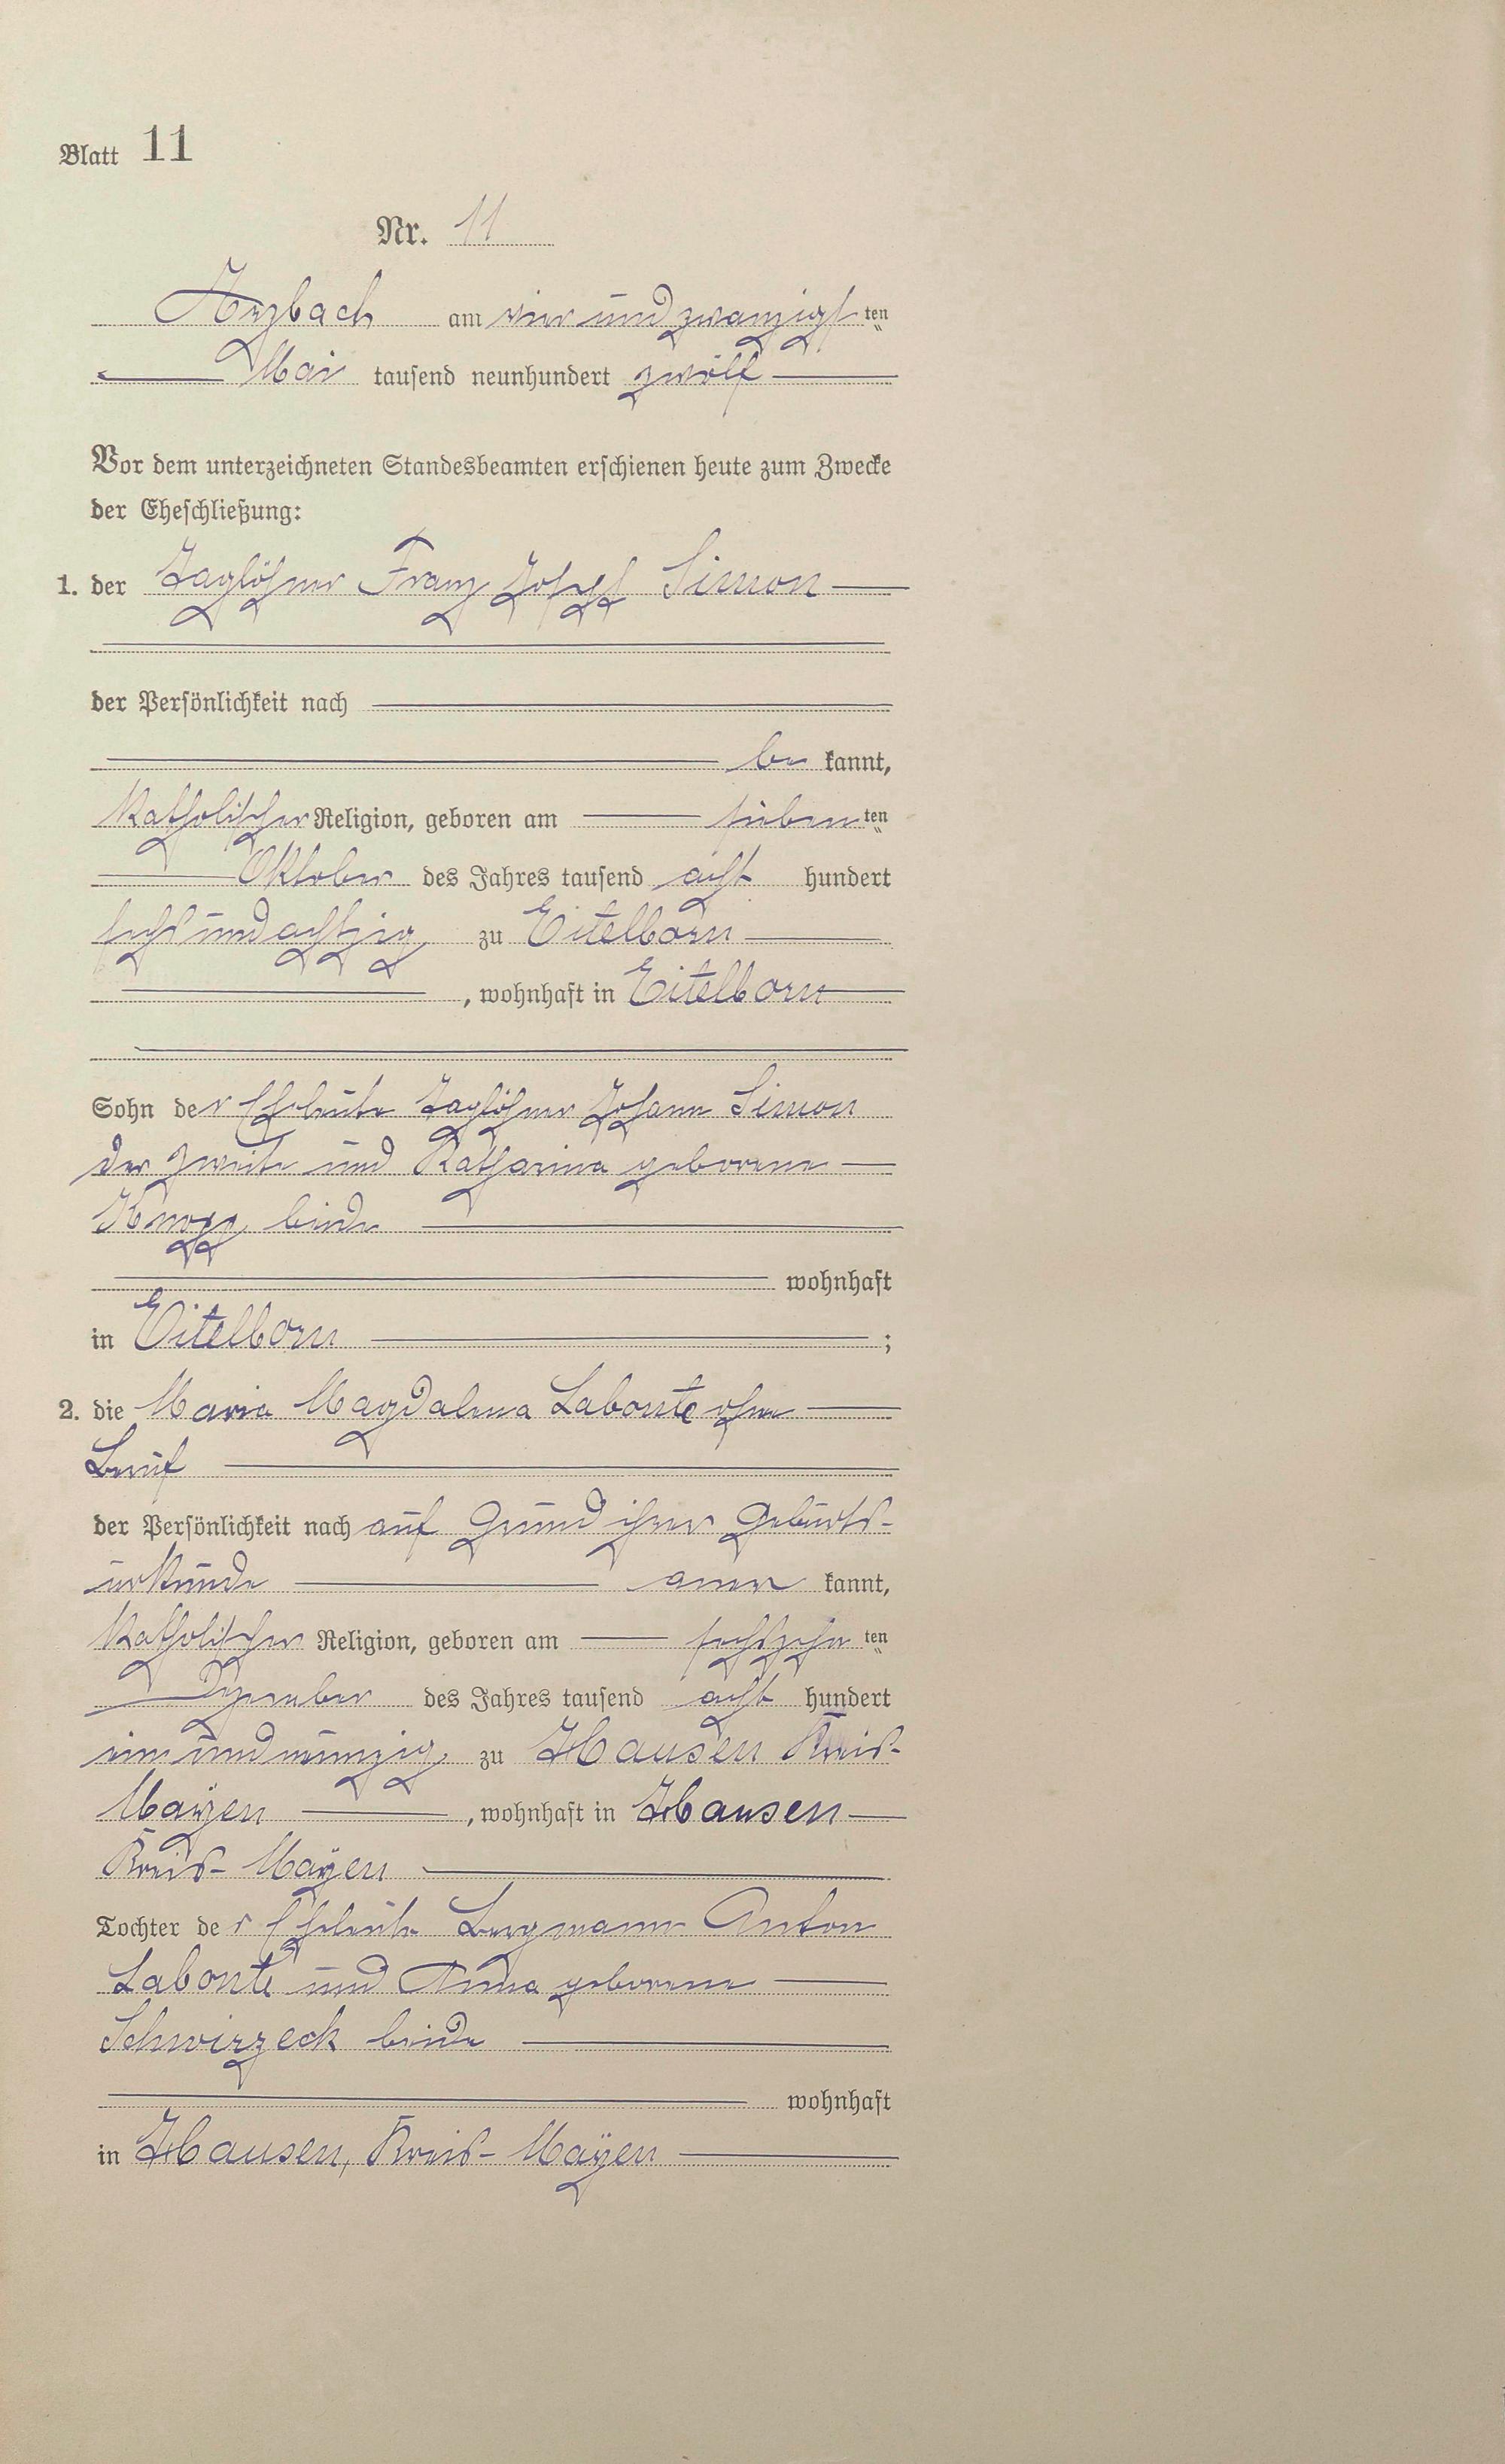 Blatt 11
Nr. 11
Arzbach am vier und zwanzigsten
Mai tausend neunhundert zwölf
Vor dem unterzeichneten Standesbeamten erschienen heute zum Zwecke
der Eheschließung:
1. der Taglöhner Franz Josef Simon
der Persönlichkeit nach
be kannt,
Katholischer Religion, geboren am sieben ten
Oktober des Jahres tausend acht hundert
sechs und achtzig zu Eitelborn
, wohnhaft in Eitelborn
Sohn der Eheleute Taglöhner Johann Simon
der zweite und Katharina geborene
Knopp beide
wohnhaft
in Eitelborn ;
2. die Maria Magdalena Labonte ohne
Beruf
der Persönlichkeit nach auf Grund ihrer Geburts-
urkunde aner kannt,
Katholischer Religion, geboren am sechszehn ten
Dezember des Jahres tausend acht hundert
ein und neunzig zu Hausen Kreis-
Mayen , wohnhaft in Hausen
Kreis-Maÿen
Tochter der Eheleute Bergmann Anton
Labonte und Anna geborene
Schwirzeck beide
wohnhaft
in Hausen, Kreis-Maÿen